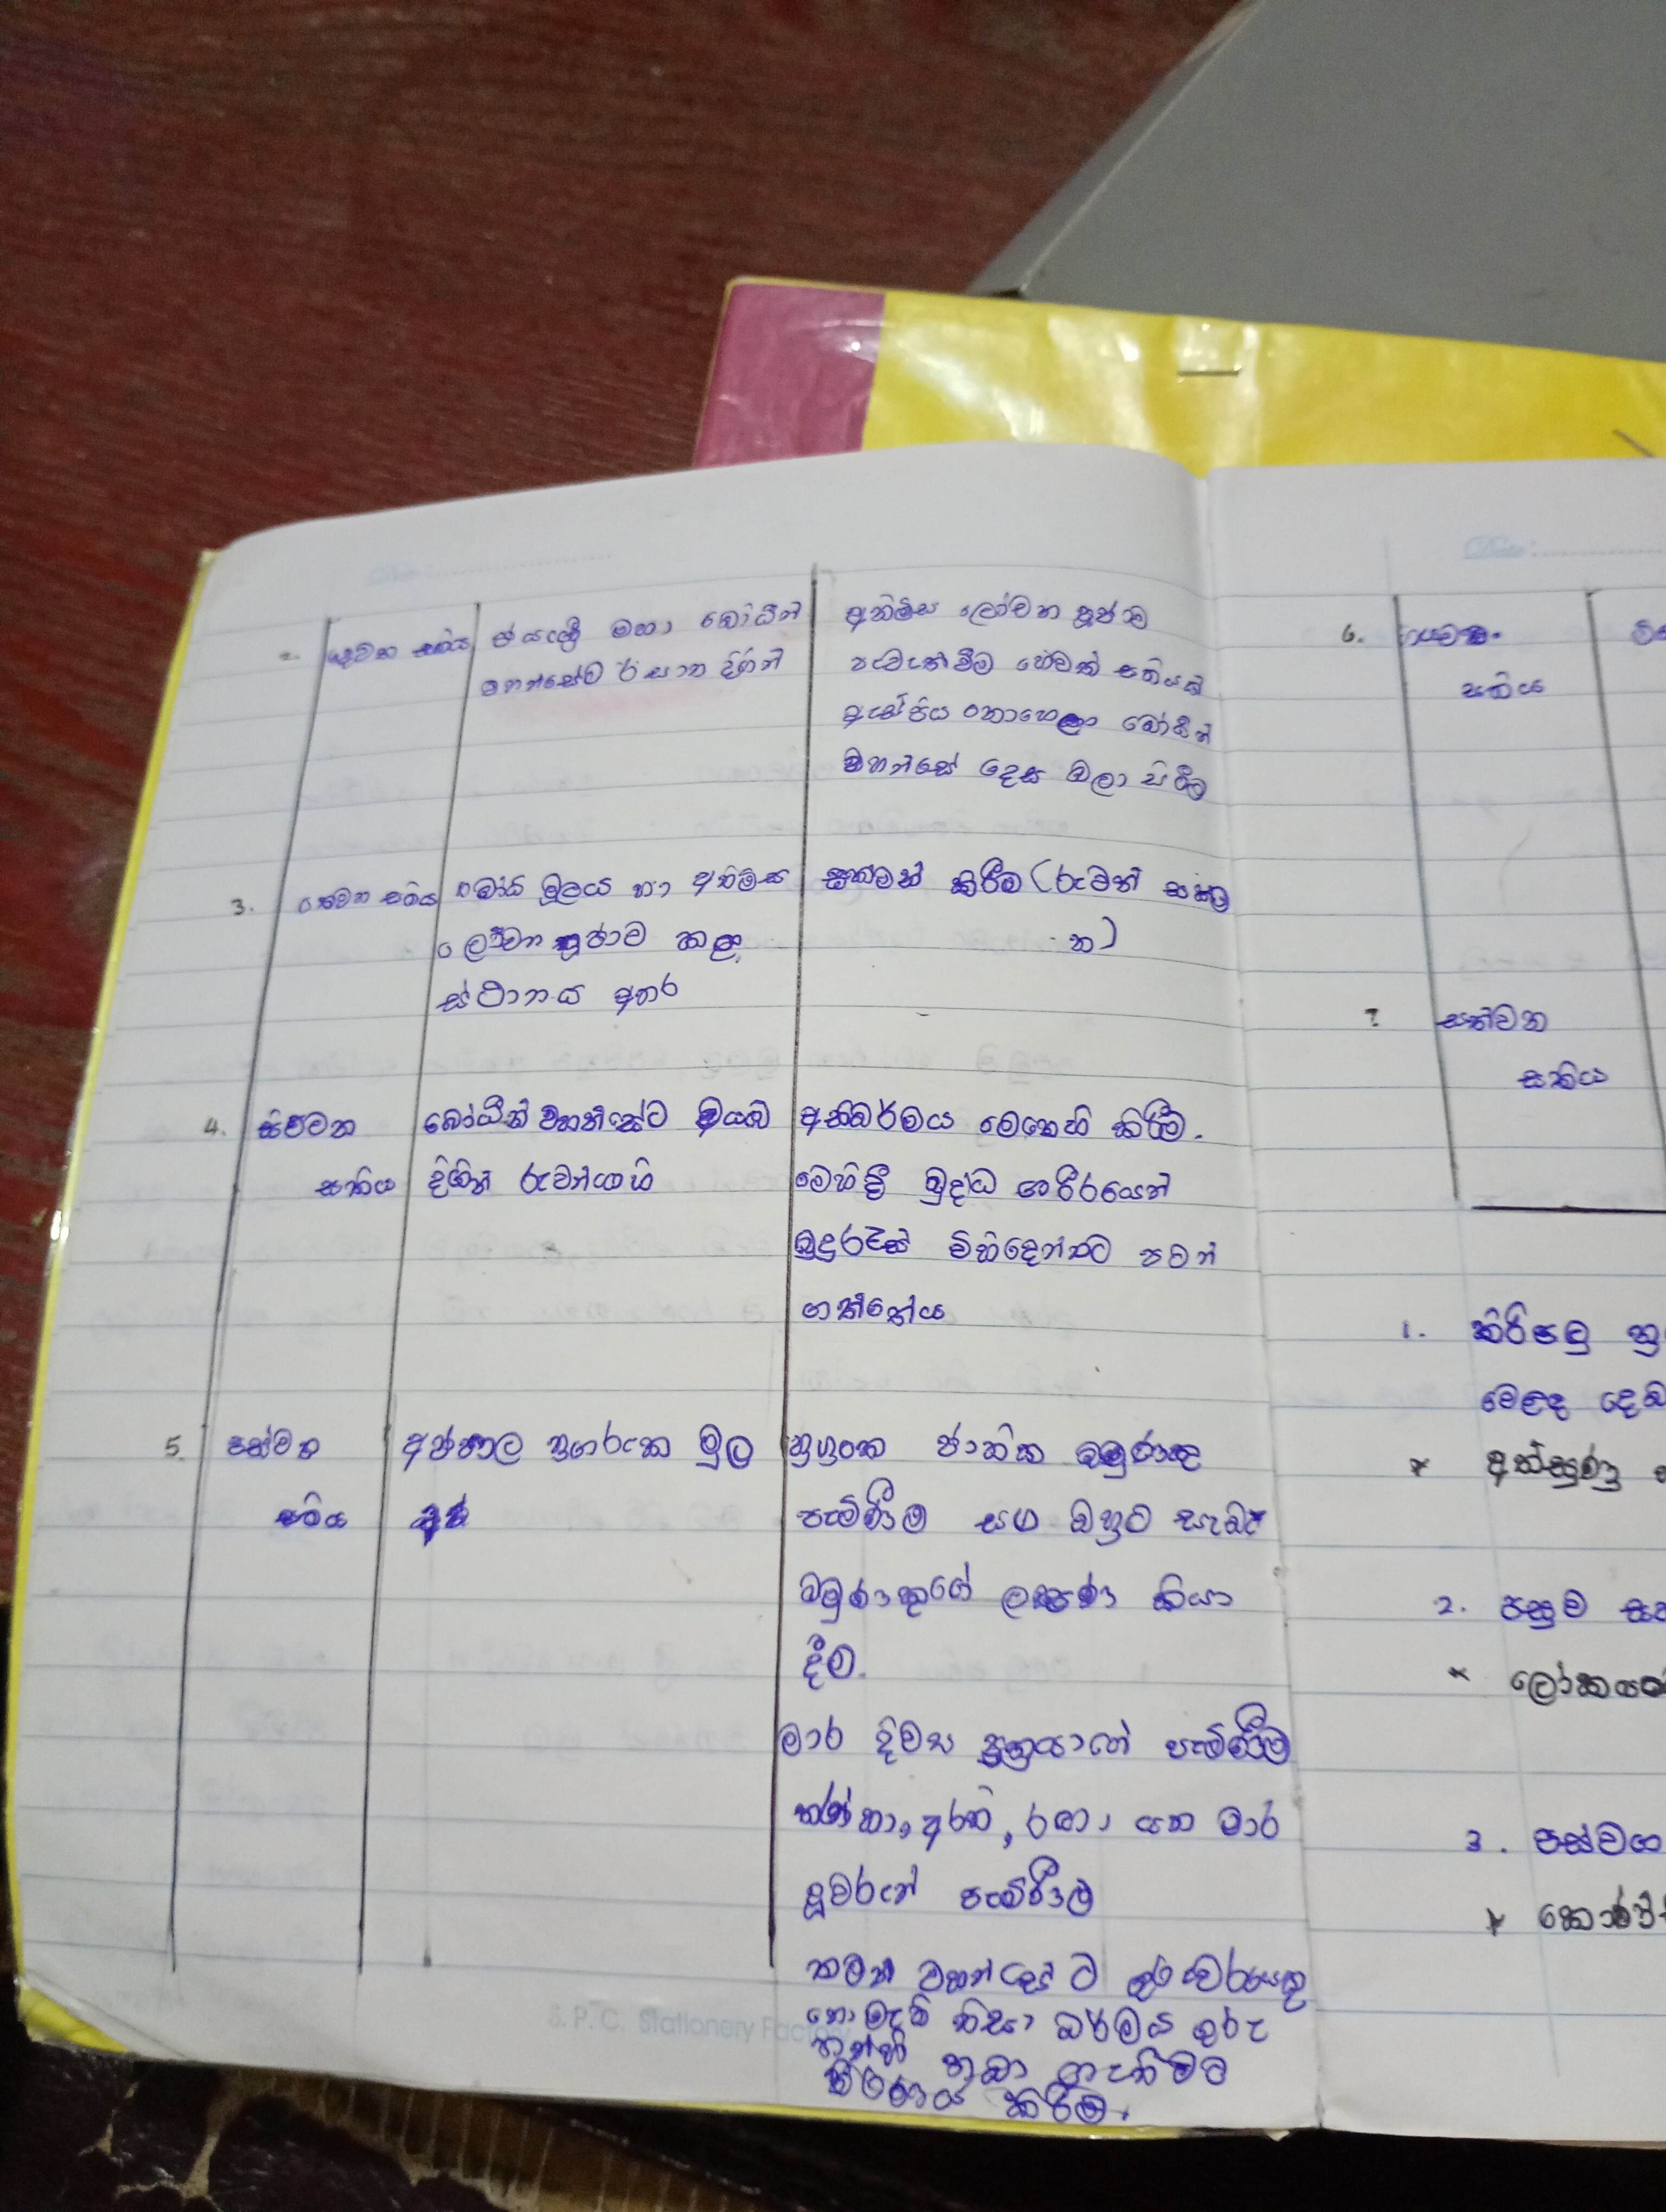 Date:
2. දෙවන සතිය ජයශ්‍රී මහා බෝධීන් අනිමිස ලෝචන පූජාව
වහන්සේට ඊසාන දිගින් පැවැත්වීම හෙවත් සතියක්
ඇසිපිය නොහෙළා බෝධීන්
වහන්සේ දෙස බලා සිටීම
3. තෙවන සතිය බෝධි මූලය හා අනිමිස සක්මන් කිරීම (රුවන් සක්ම
ලෝචන පූජාව කළ න)
ස්ථානය අතර
4. සිව්වන බෝධීන් වහන්සේට වයඹ අභිධර්මය මෙනෙහි කිරීම.
සතිය දිගින් රුවන්ගෙහි මෙහිදී බුද්ධ ශරීරයෙන්
බුදුරැස් විහිදෙන්නට පටන්
ගත්තේය
5. පස්වන අජපාල නුගරුක මුල හුහුංක ජාතික බමුණකු
සතිය පැමිණීම සහ ඔහුට සැබෑ
බමුණකුගේ ලක්ෂණ කියා
දීම.
මාර දිව්‍ය පුත්‍රයාගේ පැමිණීම
තණ්හා, අරති, රගා යන මාර
දූවරුන් පැමිණීම
තමන් වහන්සේට ගුරුවරයෙකු
නොමැති නිසා ධර්මය ගුරු
තන්හි තබා ගැනීමට
තීරණය කිරීම.
S. P. C. Stationery Factory
Date:
6. සයවන
සතිය
7 සත්වන
සතිය
1. කිරිපලු
මෙළඳ
* අත්සුණු
2. පසුව
*
3. පස්වග
*